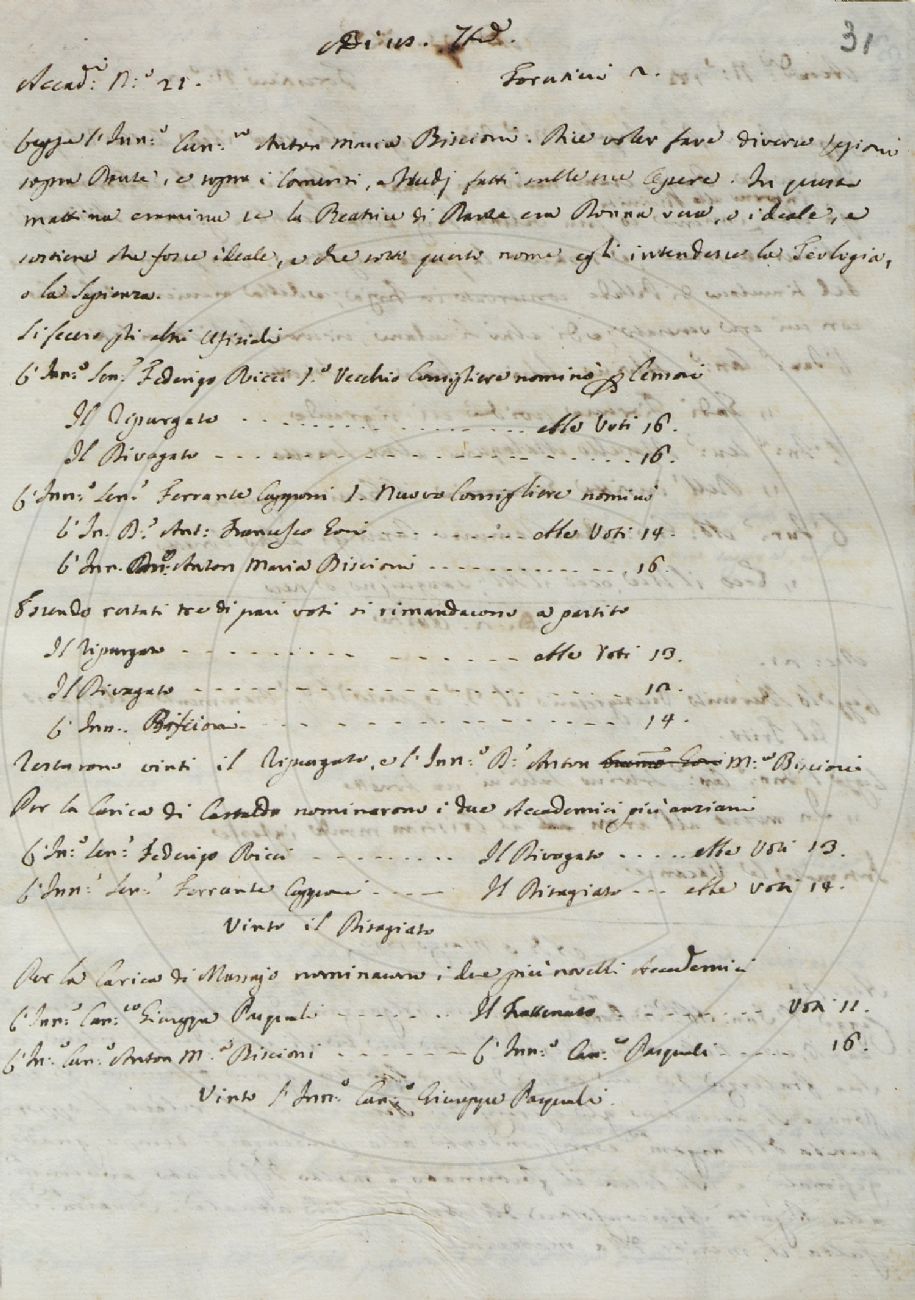 31
Accad.i N.o 21. Forestieri 2.
Legge l'Inn.o Can.co Anton Maria Biscioni. Dice voler fare diverse Lezioni
sopra Dante, e sopra i Comenti, e Studj fatti sulle sue Opere. In questa
mattina esamina se la Beatrice di Dante era Donna vera, o ideale, e
sostiene che fosse ideale, e che sotto questo nome egli intendesse la Teologia,
o la Sapienza.
Si fecero gli altri Ufiziali
L'Inn.o Sen.r Federigo Ricci 1.o Vecchio Consigliere nominò p Censori
Il Ripurgato alle Voti 16.
Il Rivogato 16.
L'Inn.o Sen.r Ferrante Capponi 1. Nuovo Consigliere nominò
L'In. D.r Ant: Francesco Gori alle Voti 14.
L'Inn. Anton Maria Biscioni 16.
Essendo restati tre di pari voti si rimandarono a partito
Il Ripurgato alle Voti 13.
Il Rivogato 12.
L'Inn. Biscioni 14.
Restarono vinti il Ripurgato, e l'Inn.o D.r Anton M.a Biscioni
Per la Carica di Castaldo nominarono i due Accademici più anziani
L'In.o Sen.r Federigo Ricci Il Rivogato alle Voti 13.
L'Inn.o Sen.r Ferrante Capponi Il Ritagiato alle voti 14.
Vinto il Ritagiato
Per la Carica di Massajo nominarono i due più novelli Accademici
L'Inn.o Can.co Giuseppe Pasquali Il Voti 11.
L'In.o Can.o Anton M.a Biscioni L'Inn.o Can.o Pasquali 16.
Vinto l'Inn.o Can.o Giuseppe Pasquali.